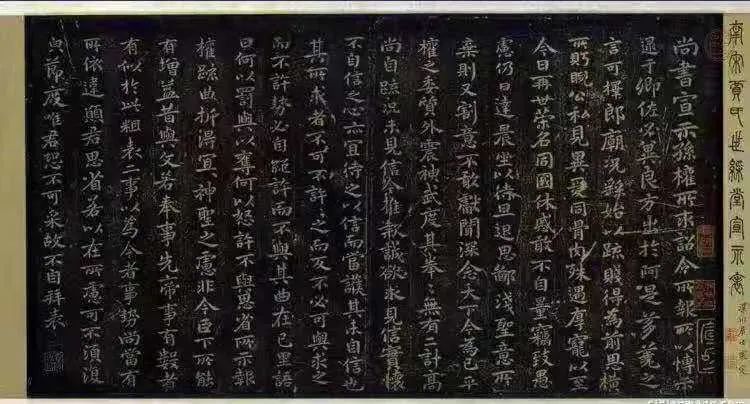 南宋賈氏世綵堂宣示表
尚書宣示孫權所求詔令所報所以博示
逮于卿佐必冀良方出於阿是芻蕘之
言可擇郎廟況繇始以疏賤得為前恩橫
所盼睨公私見異愛同骨肉殊遇厚寵以至
今日再世榮名同國休慼敢不自量竊致愚
慮仍日達晨坐以待旦退思鄙淺聖意所
棄則又割意不敢獻聞深念天下今為已平
權之委質外震神武度其拳拳無有二計高
尚自疏況未見信今推款誠欲求見信實懷
不自信之心亦宜待之以信而當護其未自信也
其所求者不可不許許之而反不必可與求之
而不許勢必自絕許而不與其曲在己里語
曰何以罰與以奪何以怒許不與思省所示報
權疏曲折得宜宜神聖之慮非今臣下所能
有增益昔與文若奉事先帝事有數者
有似於此粗表二事以為今者事勢尚當有
所依違願君思省若以在所慮可不須復
白節度唯君恐不可采故不自拜表